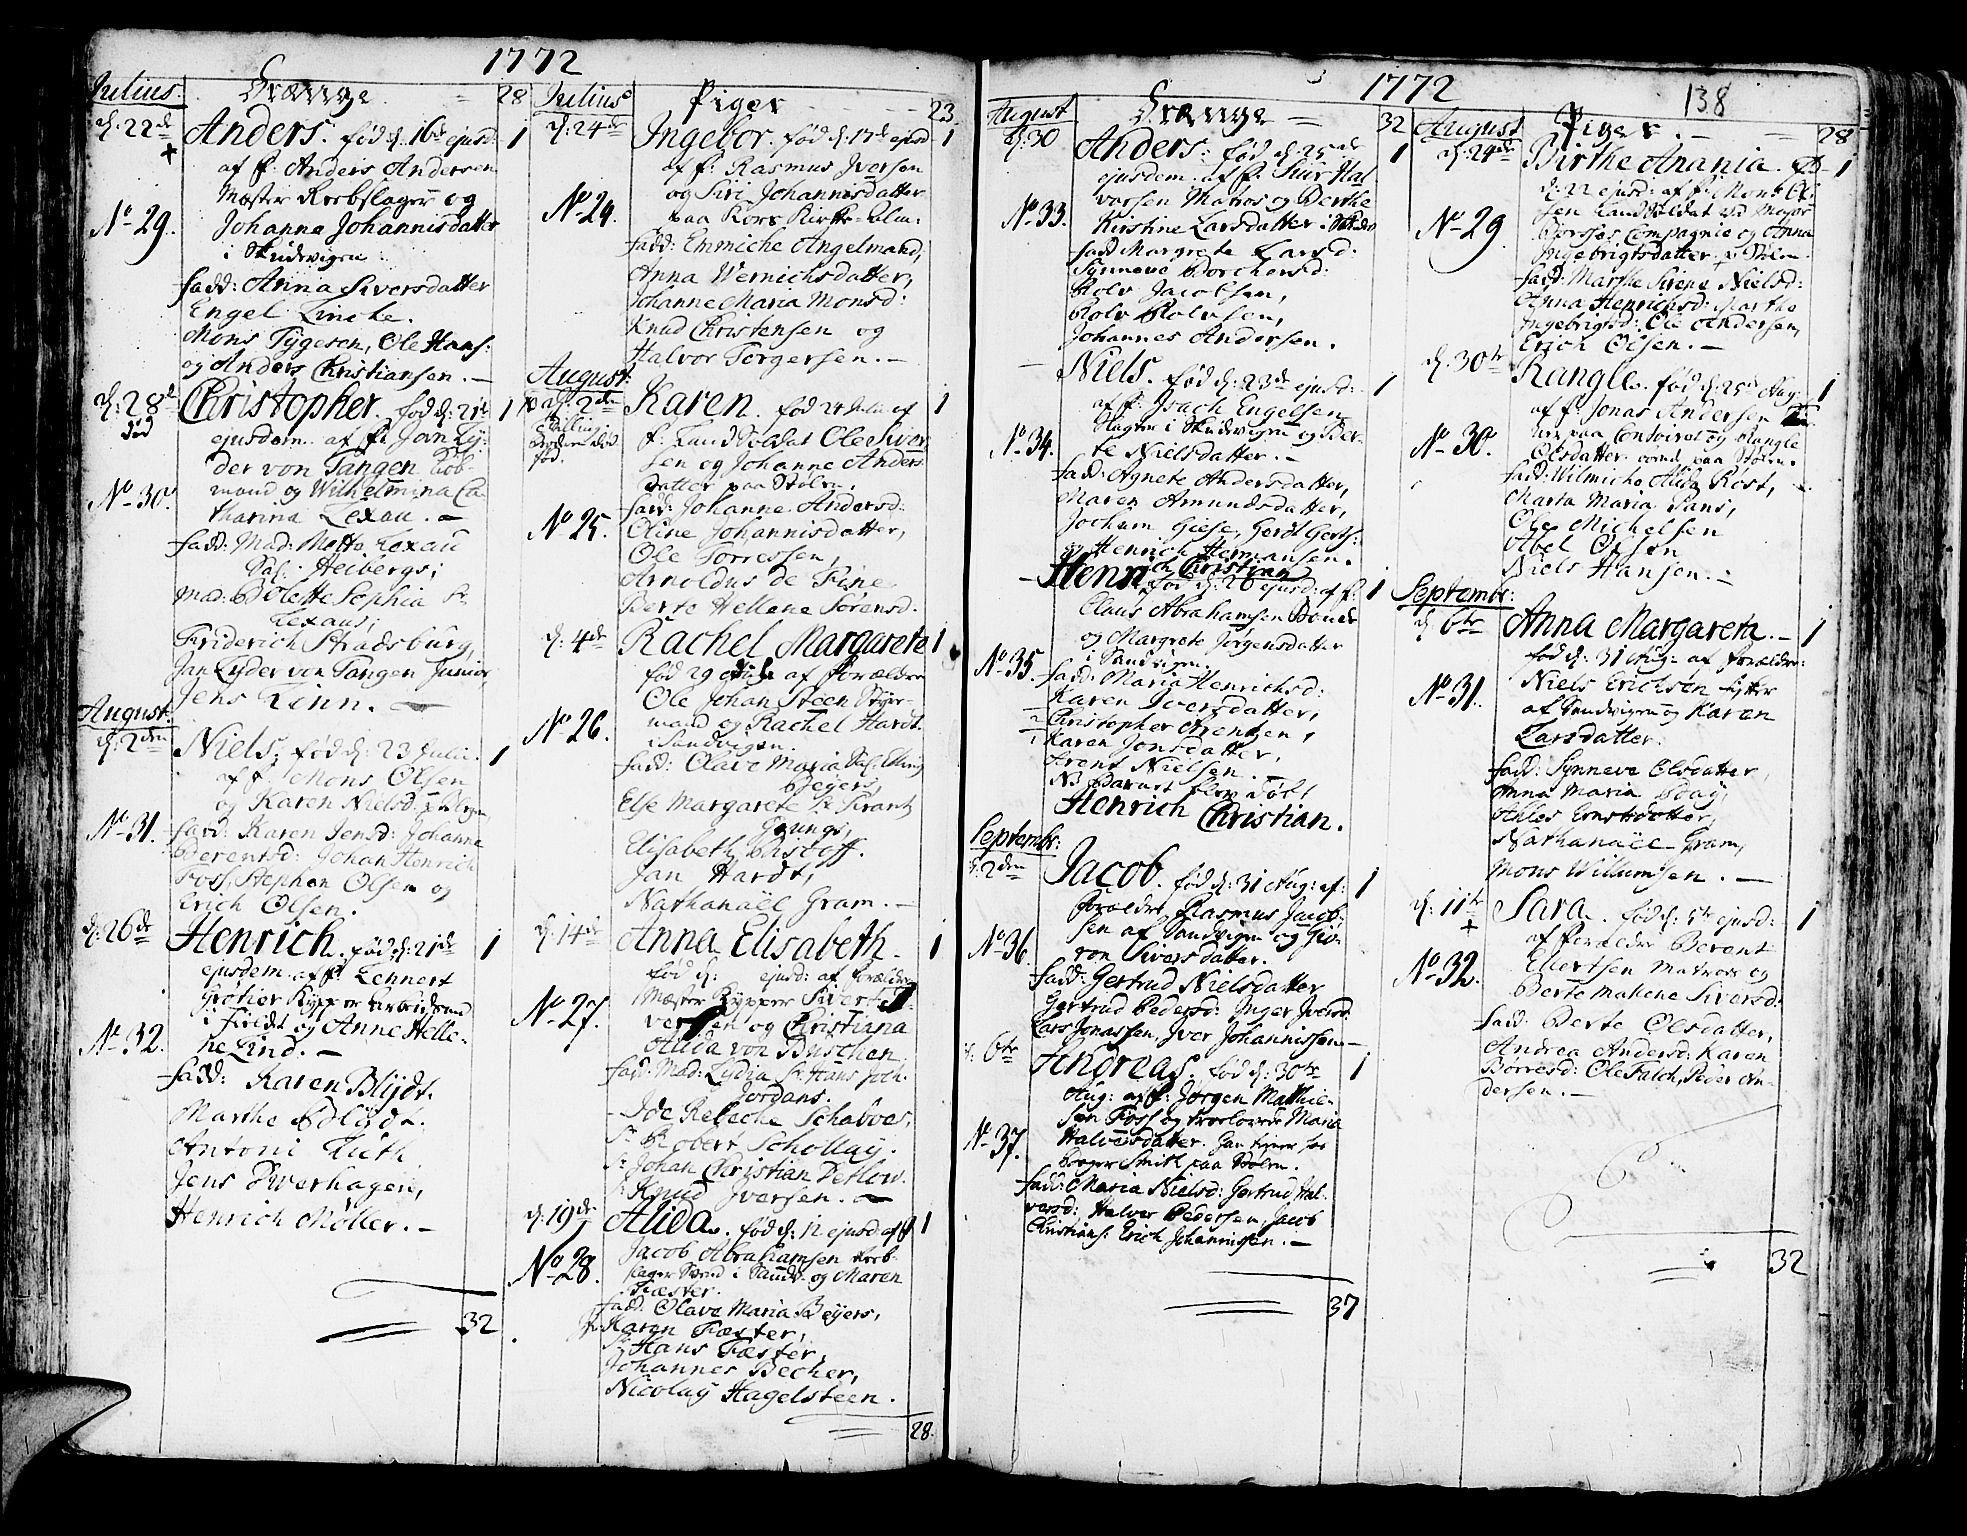 1772
Julius. Drænge 28
d. 22de Anders. fød d. 16de ejusd: 1
af f. Anders Andersen
Mæster Rebslager og
No 29. Johanna Johannisdatter
i Skudevigen
fadd: Anna Siversdatter
Engel Lincke.
Mons Tygesen, Ole Hans:
og Anders Christiansen. —
d. 28de Christopher. fød d. 21de 1
død
ejusdem. af f. Jørn Ly:
der von Tangen Kob-
No 30. mand og Wilhelmina Ca-
tharina Lexau. —
fadd: Mad: Mette Lexau
Sal: Heibergs;
Mad: Bolette Sophia Sr
Lexaus;
Friderich Stradsburg,
Jan Lyder von Tangen Junior,
Jens Finn. —
August.
d. 2den Niels. fød d. 23 Julii. 1
af f. Mons Olsen
og Karen Nielsd:
No 31. fadd: Karen Jensd: Johanne
Berentsd: Johan Henrich
Foss, Stephen Olsen og
Erich Olsen.
d. 26de Henrich. fød d. 21de 1
ejusdem. af f. Lennert
Grøtier Kypper
No 32. og Anne Helle-
ne Lind. —
fadd: Karen Blydt.
Marthe Blydt.
Antoni Fluth
Jens Overhagen,
Henrich Møller. —
32
Julius Piger 23
d. 24de Ingebor. fød d. 17de ejusd 1
af f. Rasmus Iversen
og Siri Johannisdatter
No 24. paa Kors Kirke-Alm:
fadd: Emmiche Angelmand,
Anna Wernichsdatter,
Johanne Maria Monsd:
Knud Christensen og
Halvor Torgersen. —
August:
d. 2den Karen. fød 24 Julii af 1
f. Land Soldat Ole Siver
sen og Johanne Anders
datter paa Stølen.
No 25. fadd: Johanne Andersd:
Oline Johannisdatter,
Ole Torressen,
Arnoldus de Fine
Berte Hellene Sørensd.
d. 4de Rachel Margarete 1
fød 29 Julii af Forældre
Ole Johan Steen Styr-
No 26. mand og Rachel Hardt
i Sandvigen.
fadd: Olave Maria
Beyers,
Else Margarete Sr Frantz
Grungs,
Elisabeth Bistoff.
Jan Hardt,
Nathanäel Gram. —
d. 14de Anna Elisabeth. 1
fød d: ejusd: af Forældre
No 27. Mæster Kypper Sivert
og Christiana
Alida von Buschen.
fadd: Mad: Lydia Sr Hans Joch.
Jordans.
Ide Rebecke Schabver,
Sr Robert Schollay.
Sr Johan Christian Detlow.
Sr Knud Iversen. —
d. 19de Alida. fød d: 12 ejusd: af f 1
No 28. Jacob Abrahamsen Reb-
slager Svend i Sandv. og Maren
Fæster.
fadd: Olave Maria Beyers,
Karen Fæster,
Sr Hans Fæster,
Johannes Becher,
Nicolay Hagelsteen.
28.
1772 138
August Drænge 32
d. 30 Anders. fød d. 25de 1
ejusdem. af f. Siur Hal-
vorsen Matros og Berthe
No 33. Kirstine Larsdatter i
fadd Margrete Larsd:
Synneve Borchersd:
Rolv Jacobsen,
Rolv Rolvsen,
Johannes Andersen.
Niels. fød d. 23de ejusd: 1
af f. Joach Engelsen
Slagter i Skudevigen og Ber-
No 34. te Nielsdatter. —
fadd: Agnete Andersdatter,
Maren Amundsdatter,
Jochum Giese, Gerdt Gerts:
og Henrich Hermansen.
Henrich Christian
fød d: 26 ejusd: af f. 1
Claus Abrahamsen
og Margrete Jørgensdatter
i Sandvigen.
No 35. fadd: Maria Henrichsd:
Karen Iversdatter,
Christopher Arentzen,
Karen Jonsdatter,
Arent Nielsen.
NB Barnet blev døbt
Henrich Christian.
Septembr:
d. 2den Jacob. fød d: 31 Aug: af: 1
Forældre Rasmus Jacob-
sen af Sandvigen og Siv-
No 36. ron Siversdatter.
fadd: Gertrud Nielsdatter
Gertrud Pedersd: Inger Iversd:
Lars Jonassen, Iver Johannissen—
d. 6te Andreas. fød d: 30te 1
Aug: af f: Jørgen Mathie-
sen Foss og trolovede Maria
No 37. Halvorsdatter.
Smith paa Stølen.
fadd: Maria Nielsd: Gertrud Hal-
versd: Halvor Pedersen, Jacob
Christians: Erich Johannissen. —
37
August Piger. 28
d. 24de Birthe Anania. fød 1
d: 22 ejusd: af f. Mons Ol-
sen Land Soldat ved Major
No 29 Compagnie og Anna
Ingebrigtsdatter p Stølen.
fadd: Marthe Sirene Nielsd:
Anna Henrichsd: Marthe
Ingebrigtsd: Ole Andersen,
Erich Olsen. —
d. 30te Rangle. fød d: 25de Aug: 1
af f. Jonas Andersen
paa Contoiret og Rangle
No 30. Olsdatter paa Stølen.
fadd: Wilmiche Alida Rost,
Marta Maria Jans,
Ole Michelsen
Abel Olsen
Niels Hansen. —
Septembr:
d 6te Anna Margareta. — 1
fød d: 31 Aug: af Forældre:
No 31. Niels Erichsen
af Sandvigen og Karen
Larsdatter.
fadd: Synneve Olsdatter,
Anna Maria
Ahles Ernstdatter,
Nathanäel Gram,
Mons Willumsen. —
d. 11te Sara. fød d: 5te ejusd: 1
af Forældre Berent
No 32. Ellertsen Matros og
Berte Malene Siversd:
fadd: Berte Olsdatter,
Andrea Andersd: Karen
Børresd: Ole Falch, Peder An-
dersen. —
32